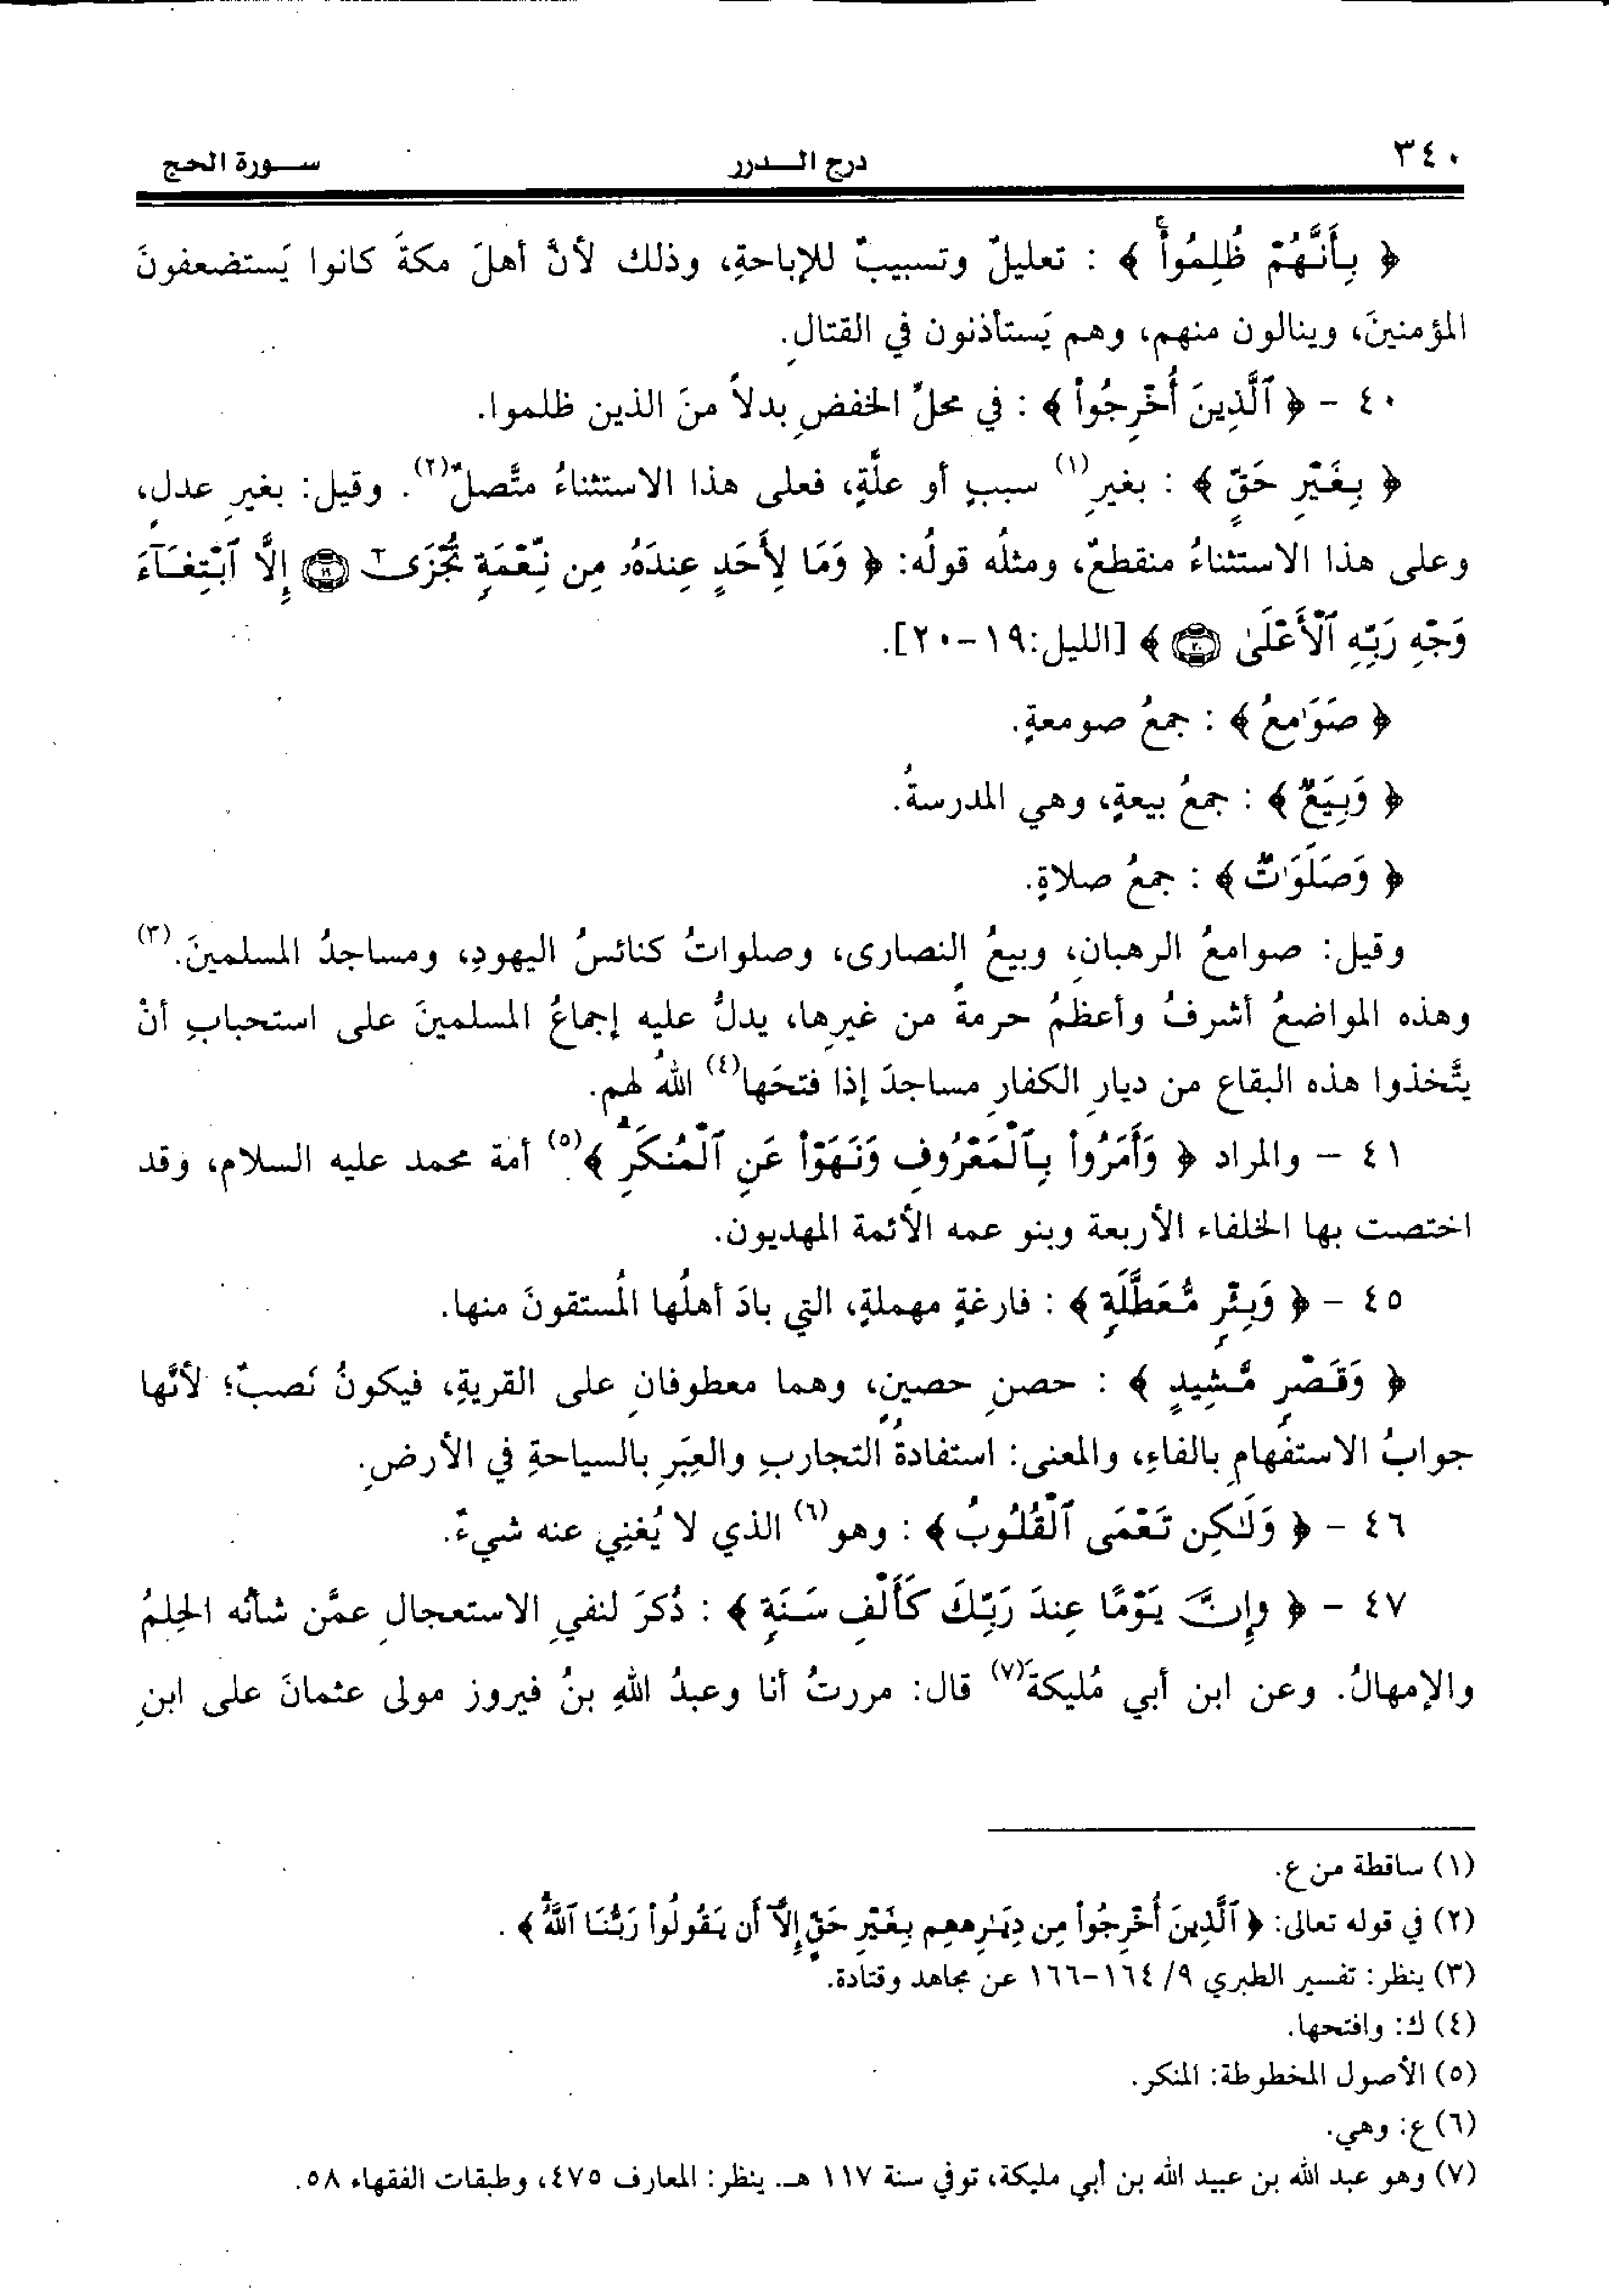 ٣٤٠ درج الـــدرر ســـورة الحج
﴿ بِأَنَّهُمْ ظُلِمُواْ ﴾ : تعليلٌ وتسبيبٌ للإباحةِ، وذلك لأنَّ أهلَ مكةَ كانوا يَستضعفونَ
المؤمنينَ، وينالون منهم، وهم يَستأذنون في القتالِ.
٤٠ - ﴿ ٱلَّذِينَ أُخْرِجُواْ ﴾ : في محلِّ الخفضِ بدلاً منَ الذين ظلموا.
﴿ بِغَيْرِ حَقٍّ ﴾ : بغيرِ(١) سببٍ أو علَّةٍ، فعلى هذا الاستثناءُ متَّصلٌ(٢). وقيل: بغيرِ عدلٍ،
وعلى هذا الاستثناءُ منقطعٌ، ومثلُه قولُه: ﴿ وَمَا لِأَحَدٍ عِندَهُۥ مِن نِّعْمَةٍ تُجْزَىٰٓ ١٩ إِلَّا ٱبْتِغَآءَ
وَجْهِ رَبِّهِ ٱلْأَعْلَىٰ ٢٠ ﴾ [الليل:١٩-٢٠].
﴿ صَوَٰمِعُ ﴾ : جمعُ صومعةٍ.
﴿ وَبِيَعٌ ﴾ : جمعُ بيعةٍ، وهي المدرسةُ.
﴿ وَصَلَوَٰتٌ ﴾ : جمعُ صلاةٍ.
وقيل: صوامعُ الرهبانِ، وبيعُ النصارى، وصلواتُ كنائسُ اليهودِ، ومساجدُ المسلمينَ.(٣)
وهذه المواضعُ أشرفُ وأعظمُ حرمةً من غيرِها، يدلُّ عليه إجماعُ المسلمينَ على استحبابِ أنْ
يتَّخذوا هذه البقاع من ديارِ الكفارِ مساجدَ إذا فتحَها(٤) اللهُ لهم.
٤١ - والمراد ﴿ وَأَمَرُواْ بِٱلْمَعْرُوفِ وَنَهَوْاْ عَنِ ٱلْمُنكَرِ ﴾(٥) أمة محمد عليه السلام، وقد
اختصت بها الخلفاء الأربعة وبنو عمه الأئمة المهديون.
٤٥ - ﴿ وَبِئْرٍ مُّعَطَّلَةٍ ﴾ : فارغةٍ مهملةٍ، التي بادَ أهلُها المُستقونَ منها.
﴿ وَقَصْرٍ مَّشِيدٍ ﴾ : حصنٍ حصينٍ، وهما معطوفانِ على القريةِ، فيكونُ نَصبٌ؛ لأنَّها
جوابُ الاستفهامِ بالفاءِ، والمعنى: استفادةُ التجاربِ والعِبَرِ بالسياحةِ في الأرضِ.
٤٦ - ﴿ وَلَٰكِن تَعْمَى ٱلْقُلُوبُ ﴾ : وهو(٦) الذي لا يُغنِي عنه شيءٌ.
٤٧ - ﴿ وَإِنَّ يَوْمًا عِندَ رَبِّكَ كَأَلْفِ سَنَةٍ ﴾ : ذُكرَ لنفيِ الاستعجالِ عمَّن شأنُه الحِلمُ
والإمهالُ. وعن ابن أبي مُليكةَ(٧) قال: مررتُ أنا وعبدُ اللهِ بنُ فيروز مولى عثمانَ على ابنِ
(١) ساقطة من ع.
(٢) في قوله تعالى: ﴿ ٱلَّذِينَ أُخْرِجُواْ مِن دِيَٰرِهِم بِغَيْرِ حَقٍّ إِلَّآ أَن يَقُولُواْ رَبُّنَا ٱللَّهُ ﴾ .
(٣) ينظر: تفسير الطبري ٩/ ١٦٤-١٦٦ عن مجاهد وقتادة.
(٤) ك: وافتحها.
(٥) الأصول المخطوطة: المنكر.
(٦) ع: وهي.
(٧) وهو عبد الله بن عبيد الله بن أبي مليكة، توفي سنة ١١٧ هـ. ينظر: المعارف ٤٧٥، وطبقات الفقهاء ٥٨.